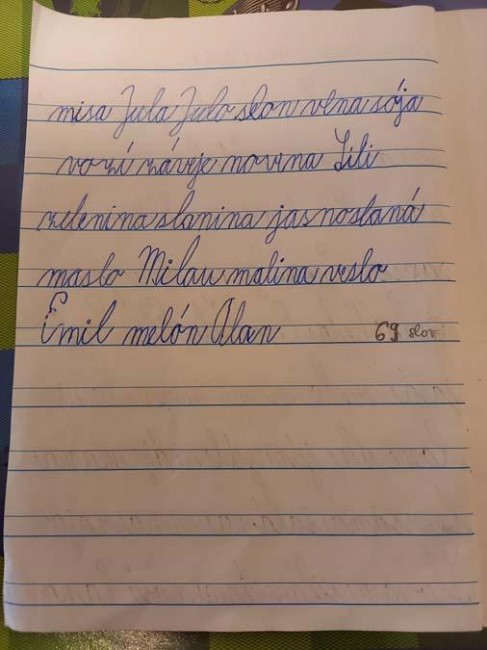 misa Jula Julo slon vlna sója
vozí záveje novina Lili
zelenina slanina jasno slaná
maslo Milan malina veslo
Emil melón Alan 69 slov